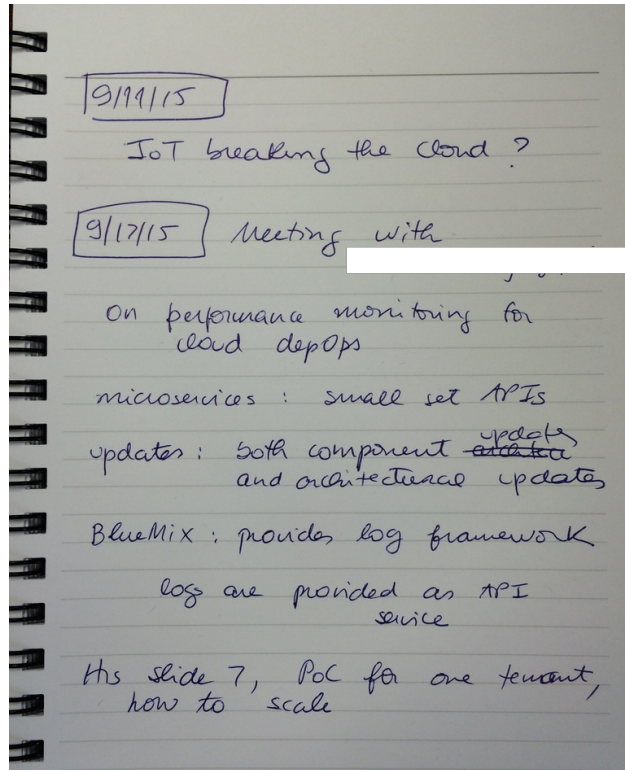 9/11/15
IoT breaking the cloud ?
9/17/15 Meeting with
On performance monitoring for
cloud depOps
microservices : small set APIs
updates : both component updates
and architectural updates
BlueMix : provides log framework
logs are provided as API
service
His slide 7, PoC for one tenant,
how to scale